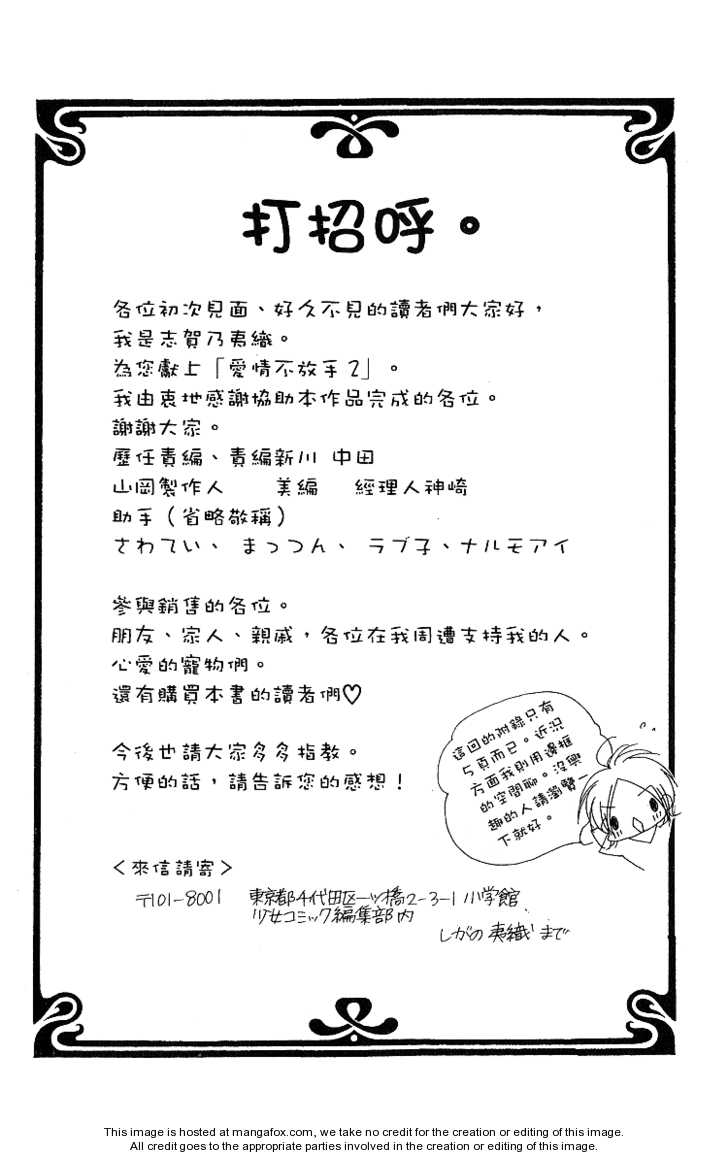 打招呼。
各位初次見面、好久不見的讀者們大家好，
我是志賀乃夷織。
為您獻上「愛情不放手2」。
我由衷地感謝協助本作品完成的各位。
謝謝大家。
歷任責編、責編新川 中田
山岡製作人 美編 經理人神崎
助手（省略敬稱）
さわてい、 まっつん、 ラブ子、ナルモアイ
參與銷售的各位。
朋友、家人、親戚，各位在我周遭支持我的人。
心愛的寵物們。
還有購買本書的讀者們♡
今後也請大家多多指教。
方便的話，請告訴您的感想！
這回的附錄只有
5頁而已。近況
方面我則用邊框
的空間聊。沒興
趣的人請瀏覽一
下就好。
＜來信請寄＞
〒101-8001 東京都千代田区一ツ橋2-3-1 小学館
少女コミック編集部内
しがの夷織 まで
This image is hosted at mangafox.com, we take no credit for the creation or editing of this image.
All credit goes to the appropriate parties involved in the creation or editing of this image.